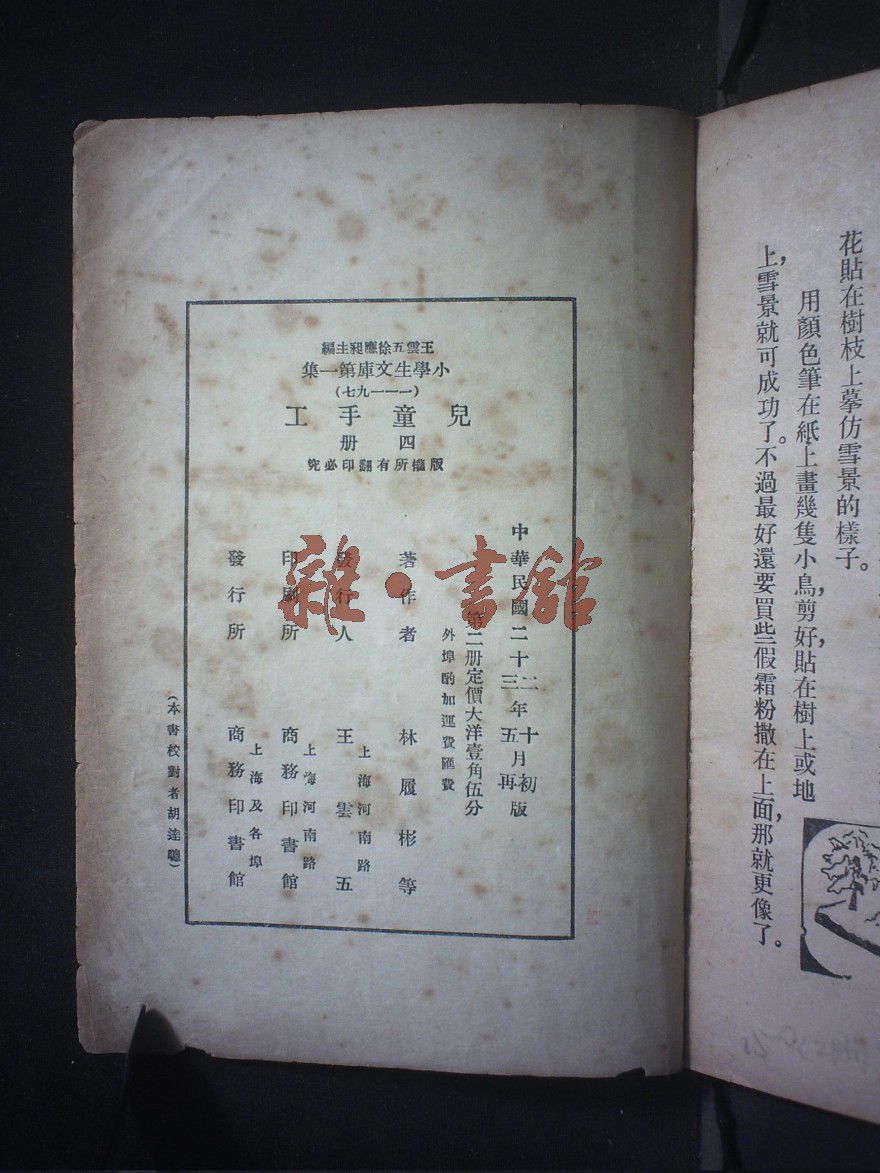 花貼在樹枝上摹仿雪景的樣子。
用顏色筆在紙上畫幾隻小鳥，剪好，貼在樹上或地
上，雪景就可成功了。不過最好還要買些假霜粉撒在上面，那就更像了。
王雲五徐應昶主編
小學生文庫第一集
(一——一九七)
兒童手工
四冊
版權所有翻印必究
中華民國二十二年十月初版
三 五 再
第二册定價大洋壹角伍分
外埠酌加運費匯費
著作者 林履彬等
發行人 王雲五
上海河南路
印刷所 商務印書館
上海河南路
發行所 商務印書館
上海及各埠
(本書校對者胡達聰)
雜·書館